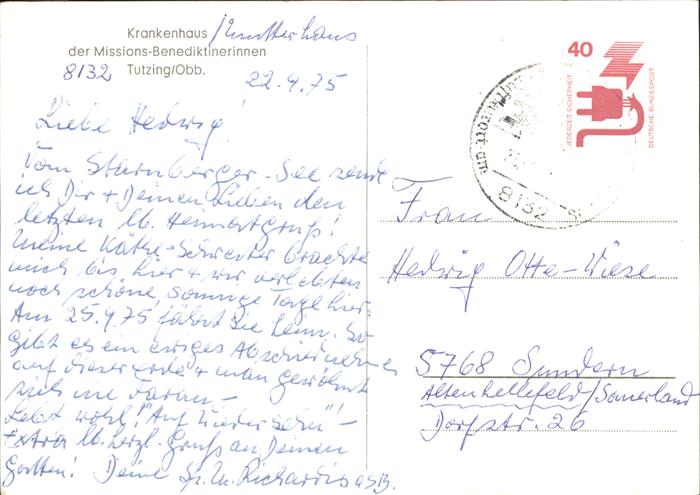 Krankenhaus / Mutterhaus
der Missions-Benediktinerinnen
8132 Tutzing/Obb.
22.4.75
Liebe Hedwig!
Vom Starnberger-See sende
ich Dir + Deinen Lieben den
letzten lb. Heimatgruß!
Meine Käthe-Schwester brachte
mich bis hier + wir verlebten
noch schöne, sonnige Tage hier.
Am 25.4.75 fährt sie heim. So
gibt es ein ewiges Abschiednehmen
auf dieser Erde + man gewöhnt
sich nie daran –
Lebt wohl! "Auf Wiedersehn" –
Extra lb. herzl. Gruß an Deinen
Gatten! Deine Sr. M. Richardis OSB.
40
JEDERZEIT SICHERHEIT
DEUTSCHE BUNDESPOST
8132
Frau
Hedwig Otte-Wiese
5768 Sundern
Altenhellefeld/Sauerland
Dorfstr. 26